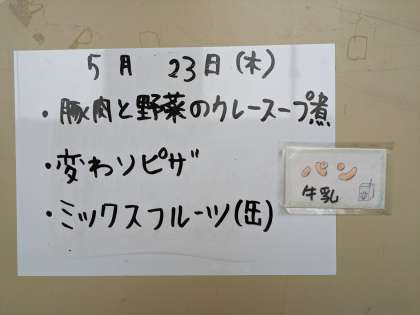 5月 23日(木)
・豚肉と野菜のクレースープ煮
・変わソピザ
・ミックスフルーツ(缶)
パン
牛乳